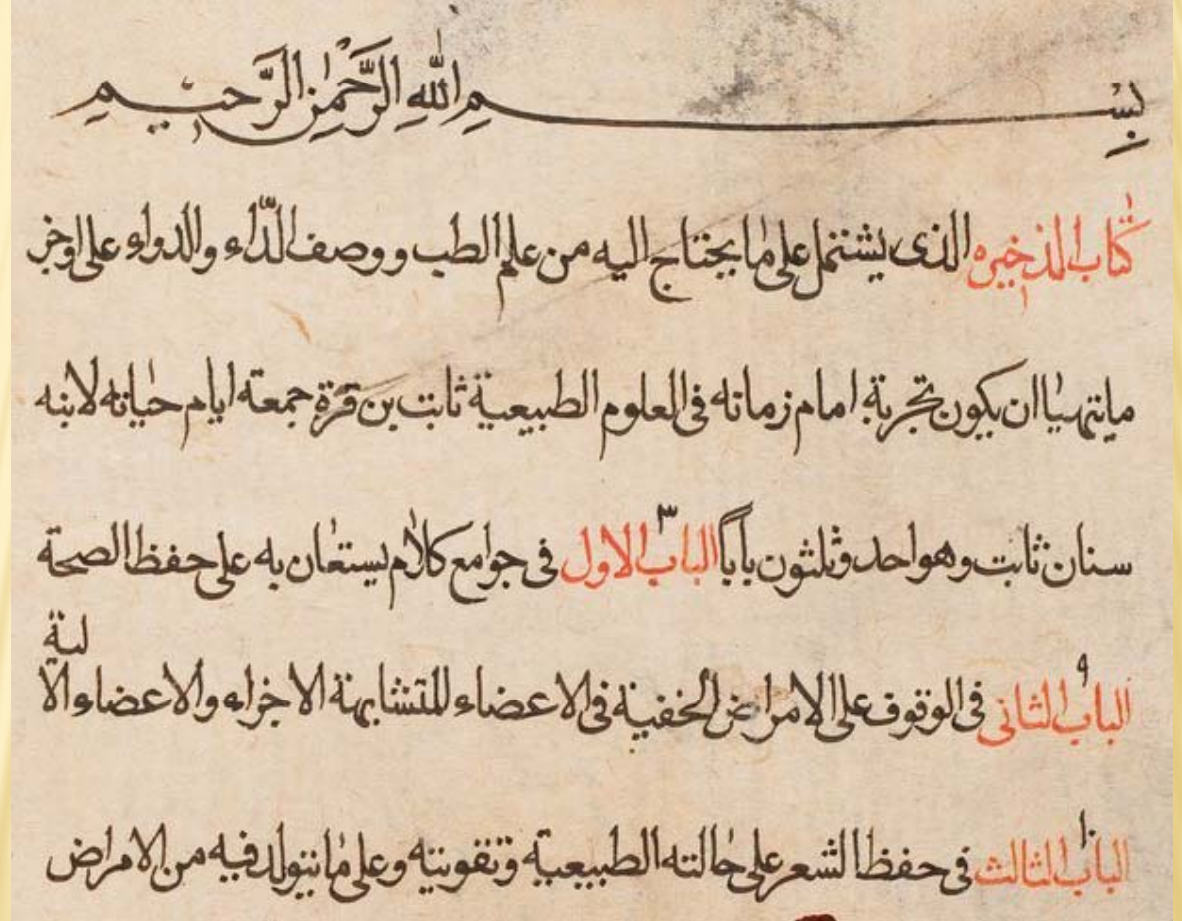 بِسْمِ اللهِ الرَّحْمٰنِ الرَّحيمِ
كتاب الذخيره الذى يشتمل على ما يحتاج اليه من علم الطب ووصف الدّاء والدواء على اوجز
ما يتهيا ان يكون تجربة امام زمانه فى العلوم الطبيعية ثابت بن قرة جمعته ايام حياته لابنه
سنان ثابت وهو احد وثلثون باباً الباب الاول فى جوامع كلام يستعان به على حفظ الصحة
الباب الثانى فى الوقوف على الامراض الخفية فى الاعضاء المتشابهة الاجزاء والاعضاء الالية
الباب الثالث فى حفظ الشعر على حالته الطبيعية وتقويته وعلى ما يتولد فيه من الامراض